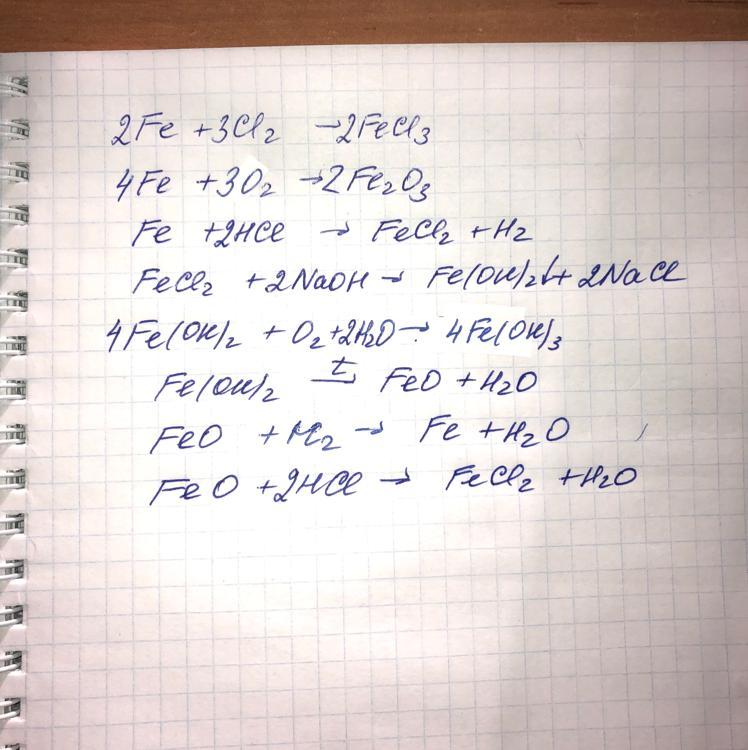 2Fe + 3Cl₂ → 2FeCl₃
4Fe + 3O₂ → 2Fe₂O₃
Fe + 2HCl → FeCl₂ + H₂
FeCl₂ + 2NaOH → Fe(OH)₂↓ + 2NaCl
4Fe(OH)₂ + O₂ + 2H₂O → 4Fe(OH)₃
Fe(OH)₂ →t FeO + H₂O
FeO + H₂ → Fe + H₂O
FeO + 2HCl → FeCl₂ + H₂O